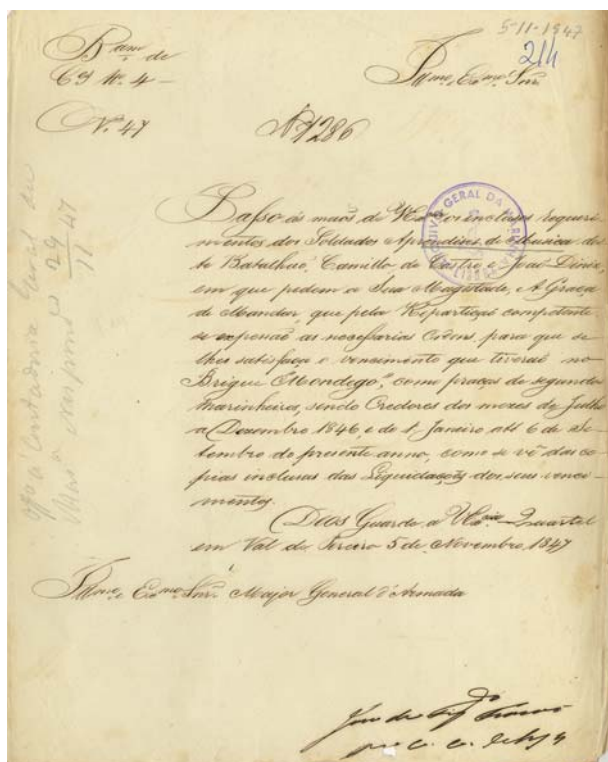 5-11-1947
214
B.am de
Cs No. 4
Illmo. e Exmo. Snr.
No. 47
No. 1286
Passo ás maõs de V. Exa. os inclusos requeri-
mentos dos Soldados Aprendizes de Musica des-
te Batalhaõ, Camillo de Castro e Joaõ Diniz,
em que pedem a Sua Magestade, A Graça
de Mandar, que pela Repartiçaõ competente
se expençaõ as necessarias Ordens, para que se
lhes satisfaça o vencimento que tiveraõ no
Brigue "Mondego", como praças de segundos
marinheiros, sendo Credores dos mezes de Julho
a Dezembro 1846, e do 1º Janeiro até 6 de Se-
tembro do presente anno, como se vê das co-
pias inclusas das Liquidações dos seus venci-
mentos.
Deos Guarde a V. Exa. Quartel
em Val do Pereiro 5 de Novembro 1847
Illmo. e Exmo. Snr. Major General d'Armada
ARQUIVO GERAL DA MARINHA
offo á Contadoria Geral da
Mara
29
11
47